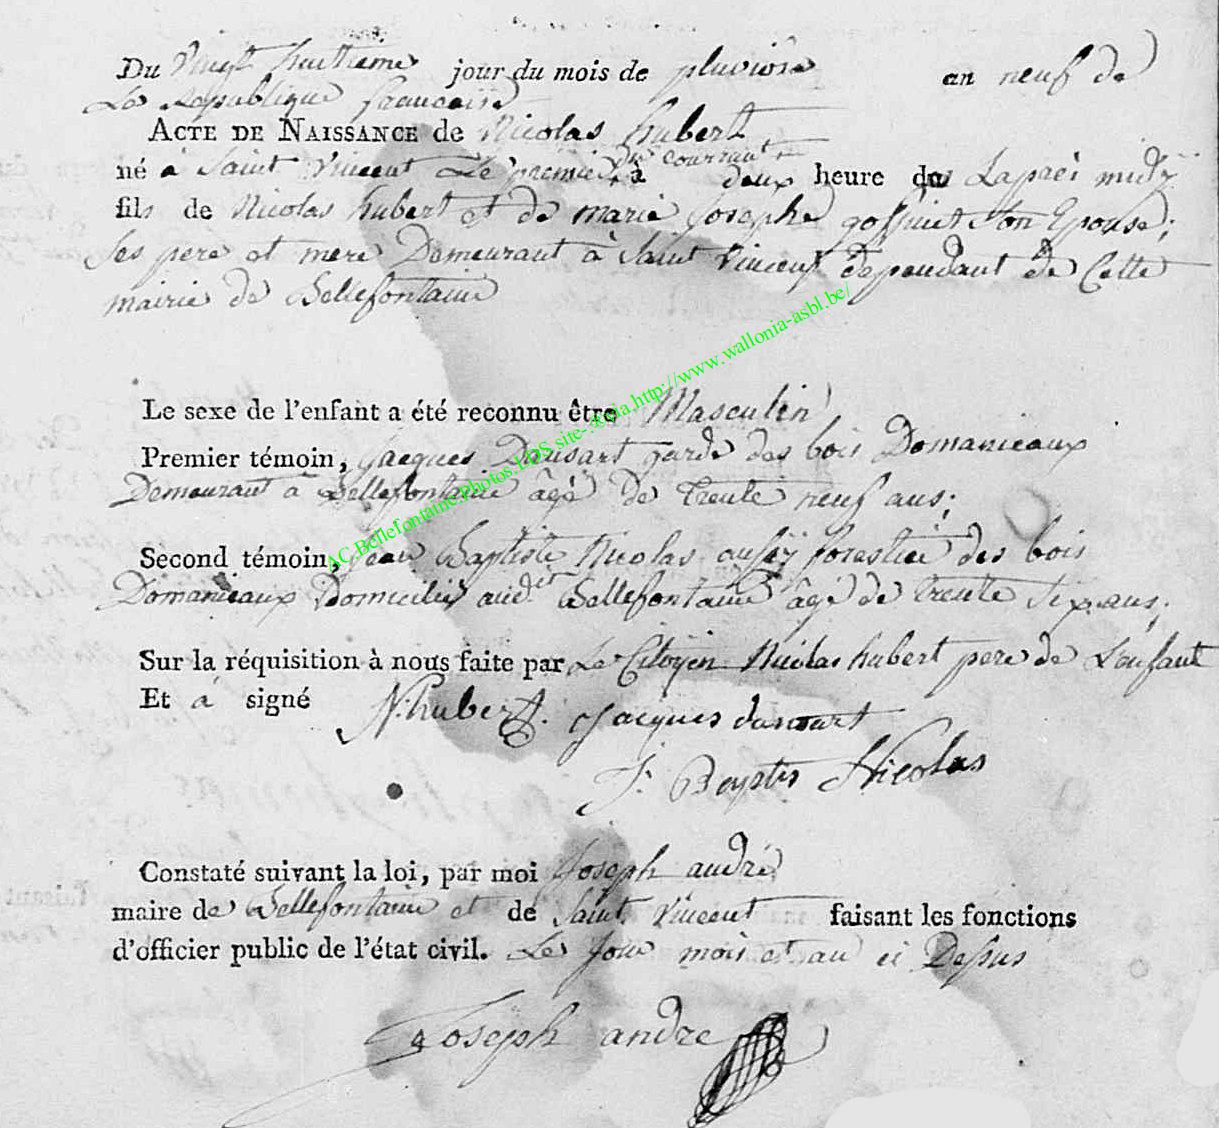 Du Vingt huitieme jour du mois de pluviose an neuf de
La Republique francaise
ACTE DE NAISSANCE de Nicolas hubert
né à Saint Vincent Le premier du courrant à deux heure de Lapres midy
fils de Nicolas hubert et de marie Josephe gofinet Son Epouse;
Ses pere et mere Demeurant à Saint Vincent dependant de Cette
mairie de Bellefontaine
Le sexe de l'enfant a été reconnu être Masculin
Premier témoin, Jacques Dausart garde des bois Domanieaux
Demeurant à Bellefontaine âgé de trente neuf ans;
Second témoin, Jean Baptiste Nicolas aussy forestier des bois
Domanieaux Domicilié audet Bellefontaine âgé de trente six ans;
Sur la réquisition à nous faite par Le Citoyen Nicolas hubert pere de L'enfant
Et à signé N: hubert. Jacques dausart
J: Baptis Nicolas
Constaté suivant la loi, par moi Joseph andré
maire de Bellefontaine et de Saint Vincent faisant les fonctions
d'officier public de l'état civil. Le Jour mois et an ci Desus
Joseph andre
AC Bellefontaine,Photos LDS site- http://www.wallonia-asbl.be/